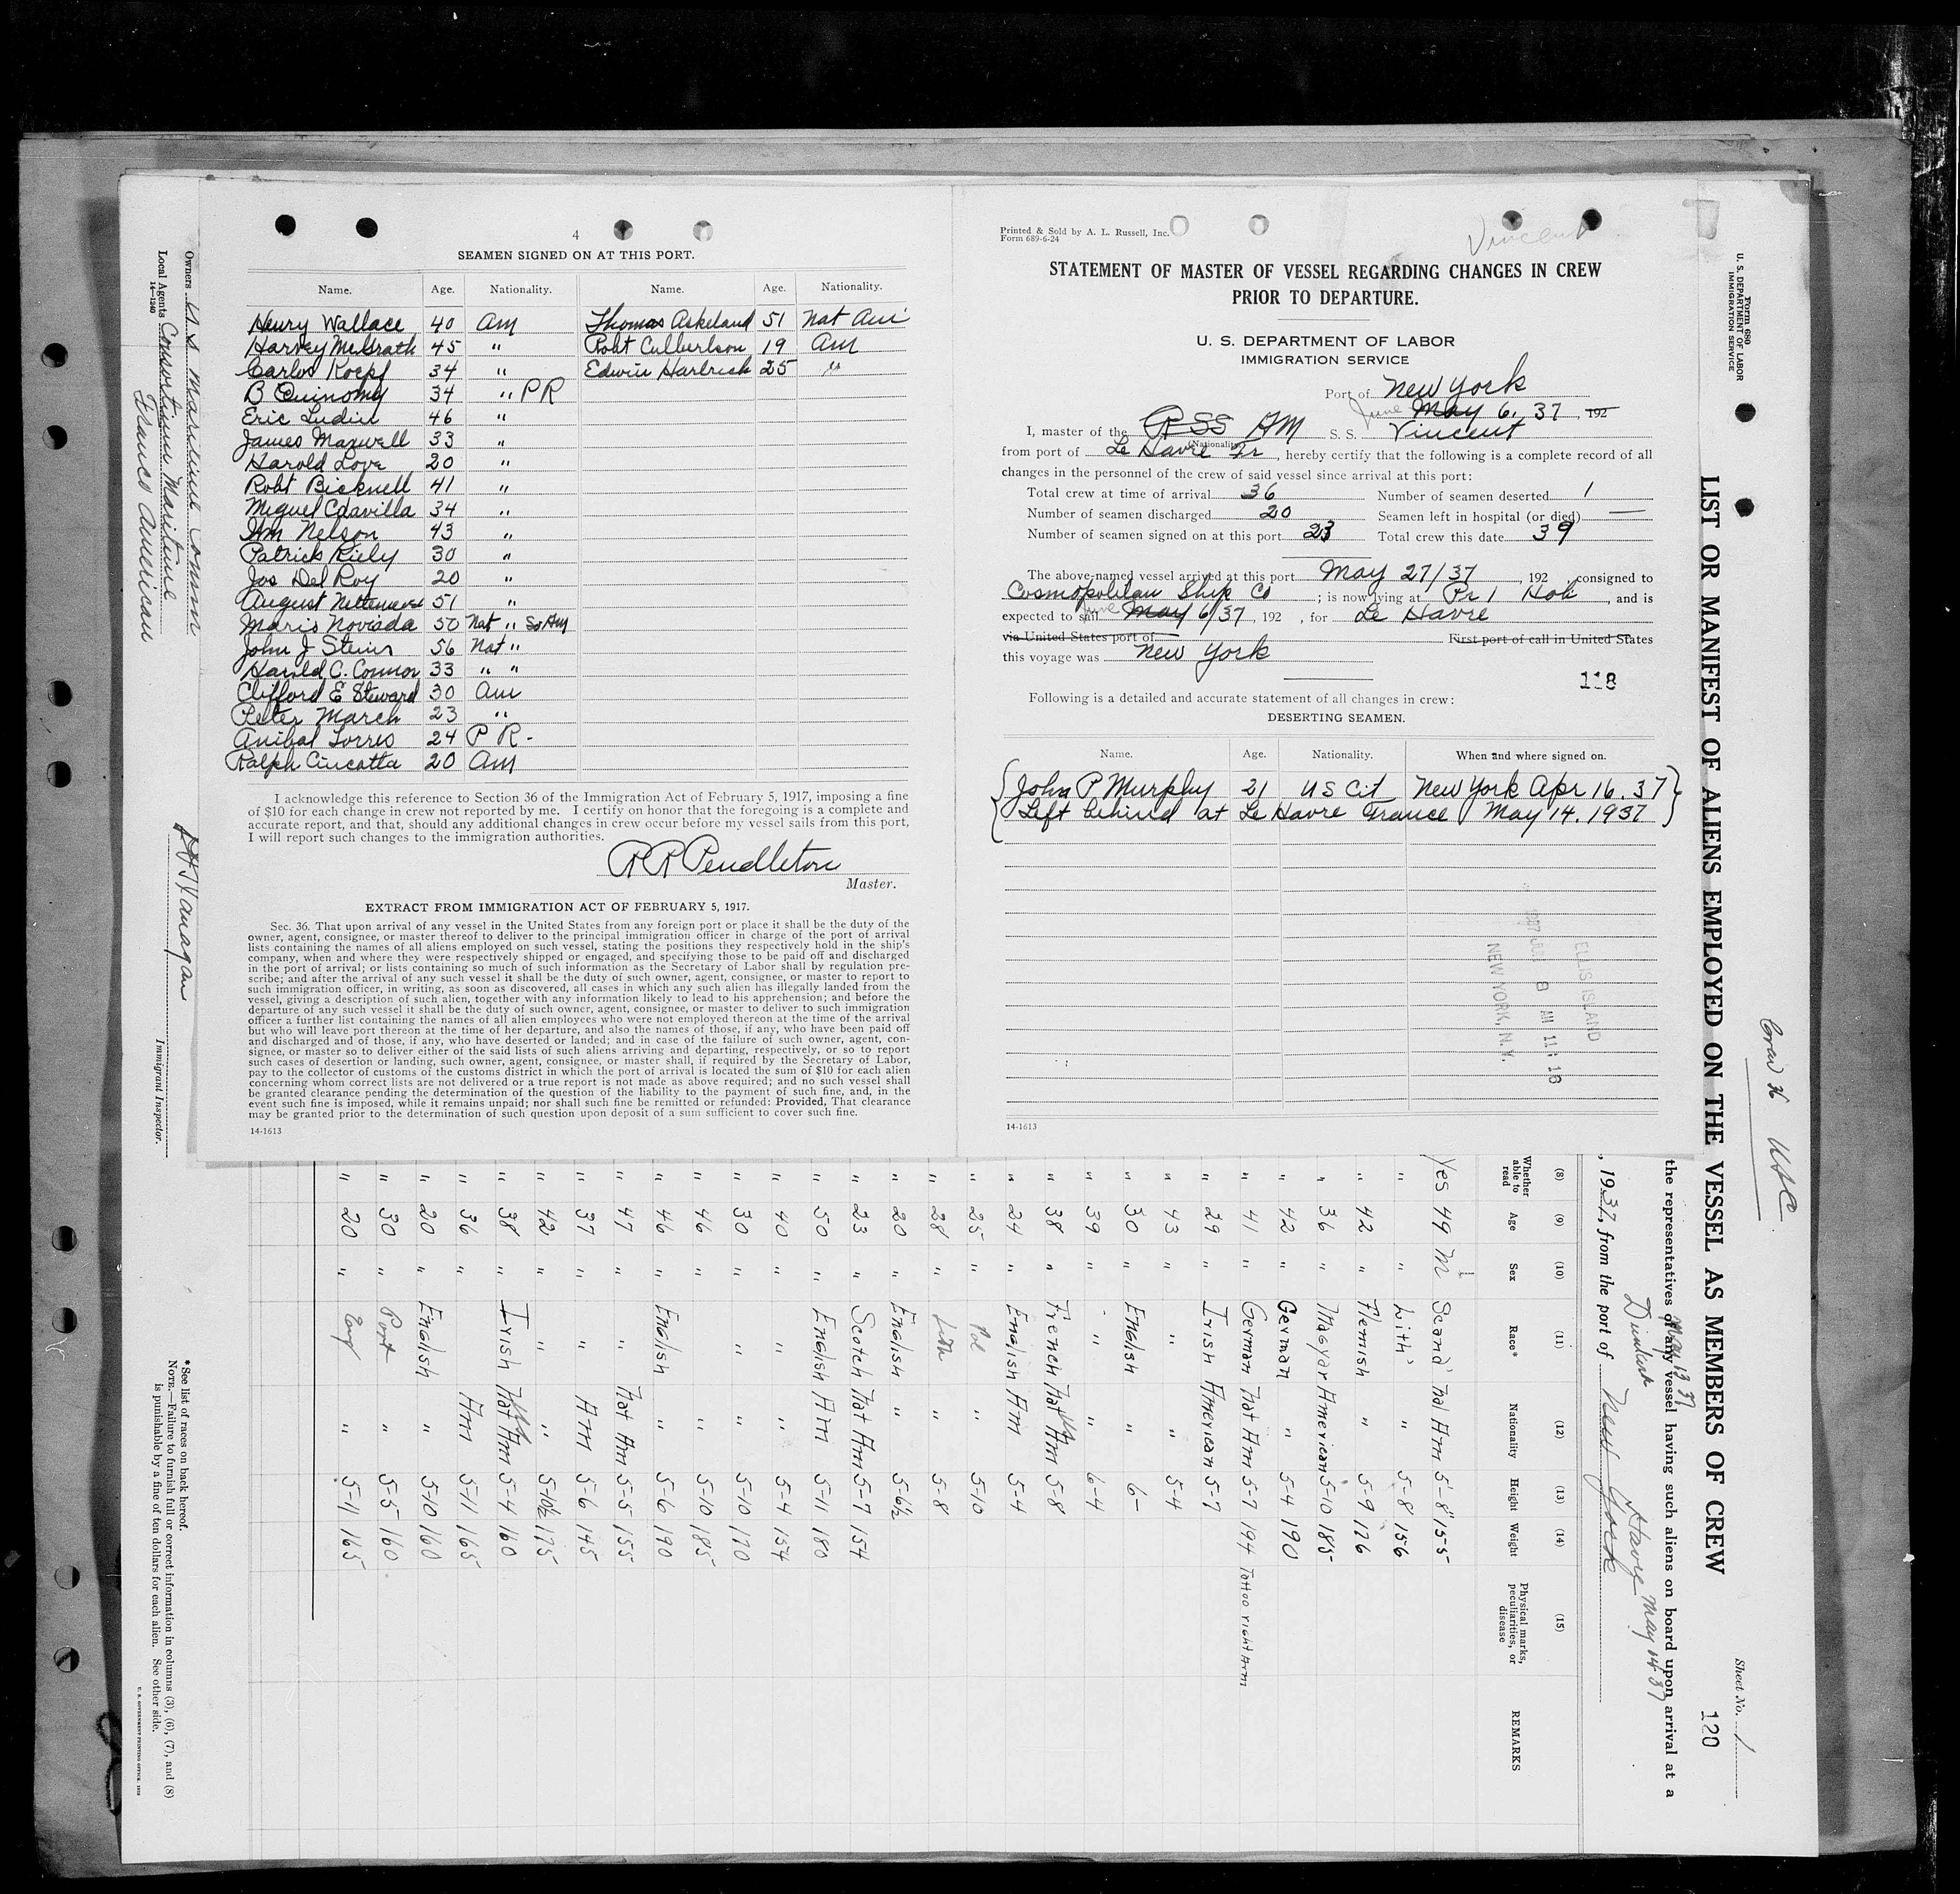 4
SEAMEN SIGNED ON AT THIS PORT.
Name. Age. Nationality. Name. Age. Nationality.
Henry Wallace 40 Am Thomas Askeland 51 Nat Am
Harvey McGrath 45 " Robt Culbertson 19 Am
Carlos Koepf 34 " Edwin 25 "
B 34 " P R
Eric Ludin 46 "
James Maxwell 33 "
Harold Love 20 "
Robt Bicknell 41 "
Miguel 34 "
Wm Nelson 43 "
Patrick Riely 30 "
Jos Del Roy 20 "
August 51 "
Maris 50 Nat " So Am
John J Steins 56 Nat "
Harold C. Connor 33 " "
Clifford E Steward 30 Am
Peter March 23 "
Anibal Torres 24 P R -
Ralph Cincotta 20 Am
I acknowledge this reference to Section 36 of the Immigration Act of February 5, 1917, imposing a fine
of $10 for each change in crew not reported by me. I certify on honor that the foregoing is a complete and
accurate report, and that, should any additional changes in crew occur before my vessel sails from this port,
I will report such changes to the immigration authorities.
R R Pendleton
Master.
EXTRACT FROM IMMIGRATION ACT OF FEBRUARY 5, 1917.
Sec. 36. That upon arrival of any vessel in the United States from any foreign port or place it shall be the duty of the
owner, agent, consignee, or master thereof to deliver to the principal immigration officer in charge of the port of arrival
lists containing the names of all aliens employed on such vessel, stating the positions they respectively hold in the ship's
company, when and where they were respectively shipped or engaged, and specifying those to be paid off and discharged
in the port of arrival; or lists containing so much of such information as the Secretary of Labor shall by regulation pre-
scribe; and after the arrival of any such vessel it shall be the duty of such owner, agent, consignee, or master to report to
such immigration officer, in writing, as soon as discovered, all cases in which any such alien has illegally landed from the
vessel, giving a description of such alien, together with any information likely to lead to his apprehension; and before the
departure of any such vessel it shall be the duty of such owner, agent, consignee, or master to deliver to such immigration
officer a further list containing the names of all alien employees who were not employed thereon at the time of the arrival
but who will leave port thereon at the time of her departure, and also the names of those, if any, who have been paid off
and discharged and of those, if any, who have deserted or landed; and in case of the failure of such owner, agent, con-
signee, or master so to deliver either of the said lists of such aliens arriving and departing, respectively, or so to report
such cases of desertion or landing, such owner, agent, consignee, or master shall, if required by the Secretary of Labor,
pay to the collector of customs of the customs district in which the port of arrival is located the sum of $10 for each alien
concerning whom correct lists are not delivered or a true report is not made as above required; and no such vessel shall
be granted clearance pending the determination of the question of the liability to the payment of such fine, and, in the
event such fine is imposed, while it remains unpaid; nor shall such fine be remitted or refunded: Provided, That clearance
may be granted prior to the determination of such question upon deposit of a sum sufficient to cover such fine.
14-1613
Printed & Sold by A. L. Russell, Inc.
Form 689-6-24
Vincent
STATEMENT OF MASTER OF VESSEL REGARDING CHANGES IN CREW
PRIOR TO DEPARTURE.
U. S. DEPARTMENT OF LABOR
IMMIGRATION SERVICE
Port of New York
June May 6, 37, 192
I, master of the A SS AM S. S. Vincent
(Nationality)
from port of Le Havre Fr, hereby certify that the following is a complete record of all
changes in the personnel of the crew of said vessel since arrival at this port:
Total crew at time of arrival 36 Number of seamen deserted 1
Number of seamen discharged 20 Seamen left in hospital (or died) —
Number of seamen signed on at this port 23 Total crew this date 39
The above-named vessel arrived at this port May 27/37, 192 , consigned to
Cosmopolitan Ship Co ; is now lying at Pr 1 Hob, and is
expected to sail June May 6/37, 192 , for Le Havre
via United States port of — First port of call in United States
this voyage was New York
118
Following is a detailed and accurate statement of all changes in crew:
DESERTING SEAMEN.
Name. Age. Nationality. When and where signed on.
John P Murphy 21 US Cit New York Apr 16. 37
Left behind at Le Havre France May 14. 1937
ELLIS ISLAND
8 AM 11:18
NEW YORK, N.Y.
14-1613
Form 680
U. S. DEPARTMENT OF LABOR
IMMIGRATION SERVICE
LIST OR MANIFEST OF ALIENS EMPLOYED ON THE VESSEL AS MEMBERS OF CREW
Sheet No. 1
120
Crew 36 USC
the representatives of any vessel having such aliens on board upon arrival at a
Dunkirk May 13 37
, 1937, from the port of New York Havre May 14 37
(8) (9) (10) (11) (12) (13) (14) (15)
Whether able to read Age Sex Race* Nationality Height Weight Physical marks, peculiarities, or disease REMARKS
Yes 49 M Scand Nat Am 5-8 155
" " Lith " 5-8 156
" 42 " Flemish " 5-9 176
" 36 " Magyar American 5-10 185
" 42 " German " 5-4 190
" 41 " German Nat Am 5-7 194 Tattoo right arm
" 29 " Irish American 5-7
" 43 " " " 5-4
" 30 " English " 6-
" 39 " " " 6-4
" 38 " French Nat Am 5-8
" 24 " English Am 5-4
" 25 " Pol " 5-10
" 28 " Lith " 5-8
" 20 " English " 5-6½
" 23 " Scotch Nat Am 5-7 154
" 50 " English Am 5-11 180
" 40 " " " 5-4 154
" 30 " " " 5-10 170
" 46 " " 5-10 185
" 46 " English " 5-6 190
" 47 " " Nat Am 5-5 155
" 37 " " Am 5-6 145
" 42 " " " 5-10½ 175
" 38 " Irish Nat Am 5-4 160
" 36 " Am 5-11 165
" 20 " English " 5-10 160
" 30 " Port " 5-5 160
" 20 " Eng " 5-11 165
Owners U S Maritime Comm
Local Agents Consortium Maritime
Franco American
14-1240
Immigrant Inspector.
*See list of races on back hereof.
NOTE.—Failure to furnish full or correct information in columns (3), (6), (7), and (8)
is punishable by a fine of ten dollars for each alien. See other side.
U. S. GOVERNMENT PRINTING OFFICE